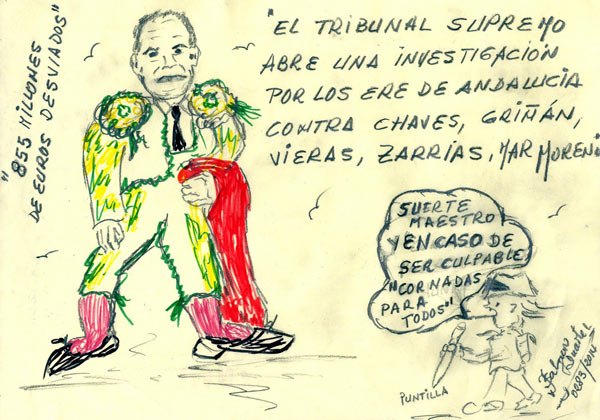 "855 MILLONES
DE EUROS DESVIADOS"
"EL TRIBUNAL SUPREMO
ABRE UNA INVESTIGACIÓN
POR LOS ERE DE ANDALUCIA
CONTRA CHAVES, GRIÑÁN,
VIERAS, ZARRIAS, MAR MORENO
SUERTE
MAESTRO
Y EN CASO DE
SER CULPABLE
"CORNADAS
PARA
TODOS"
PUNTILLA